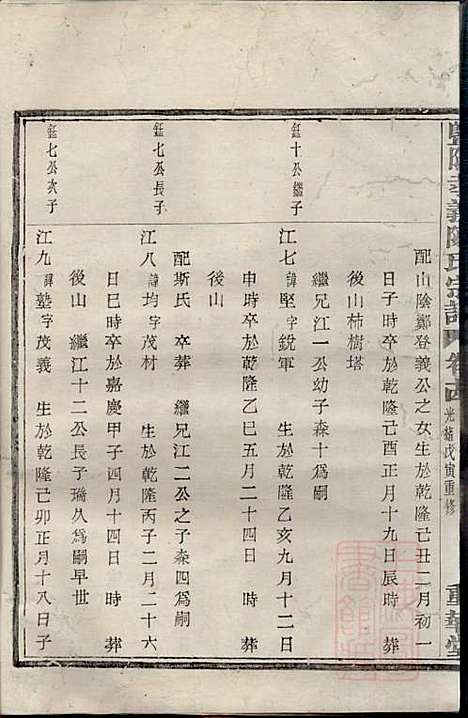 暨陽孝義陳氏宗譜 卷之四 光緒戊寅重修 重華堂
配山陰鄭登義公之女生於乾隆己丑二月初一
日子時卒於乾隆己酉正月十九日辰時 葬
後山柿樹塔
繼兄江一公幼子森十爲嗣
鈺十公繼子
江七諱堅字銳軍 生於乾隆乙亥九月十二日
申時卒於乾隆乙巳五月二十四日 時 葬
後山
配斯氏 卒葬 繼兄江二公之子森四爲嗣
鈺七公長子
江八諱均字茂村 生於乾隆丙子二月二十六
日巳時卒於嘉慶甲子四月十四日 時 葬
後山 繼江十二公長子瑞久爲嗣早世
鈺七公次子
江九諱塾字茂義 生於乾隆己卯正月十八日子